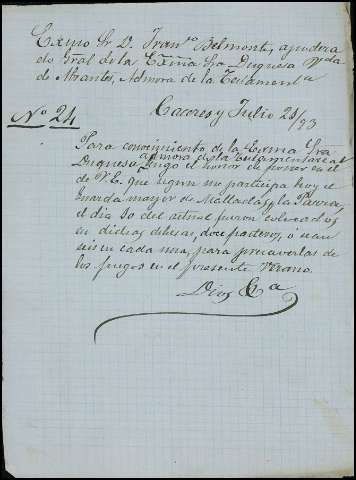 Exmo Sr D. Franco Belmonte, apodera
do Gral de la Exma Sra Duquesa Vda
de Abrantes, Admora de la Testamenta
Caceres y Julio 21/93
No 24
Para conocimiento de la Exma Sra
admora de la Testamentaria
Duquesa, tengo el honor de poner en el
de V.E. que segun me participa hoy el
Guarda mayor de Malladas y la Parra,
el dia 10 del actual fueron colocados
en dichas dehesas, doce practicos, ó sean
seis en cada una, para precaverlas de
los fuegos en el presente Verano.
Dios &a